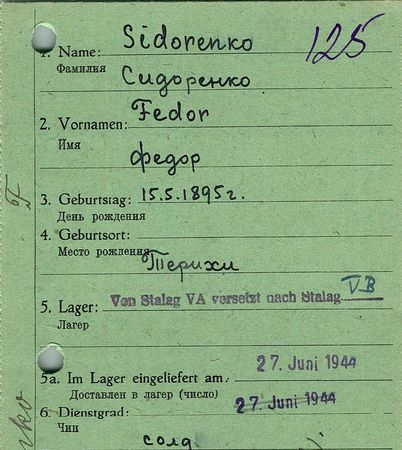 125
1. Name: Sidorenko
Фамилия
Сидоренко
2. Vornamen: Fedor
Имя
федор
3. Geburtstag: 15.5.1895г.
День рождения
4. Geburtsort:
Место рождения
Терихи
5. Lager: Von Stalag VA versetzt nach Stalag VB
Лагер
27. Juni 1944
5a. Im Lager eingeliefert am:
Доставлен в лагер (число)
6. Dienstgrad: 27. Juni 1944
Чин
солд.